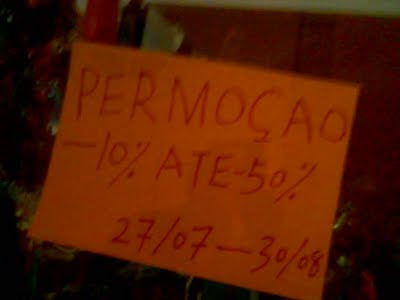 PERMOÇAO
-10% ATE-50%
27/07-30/08